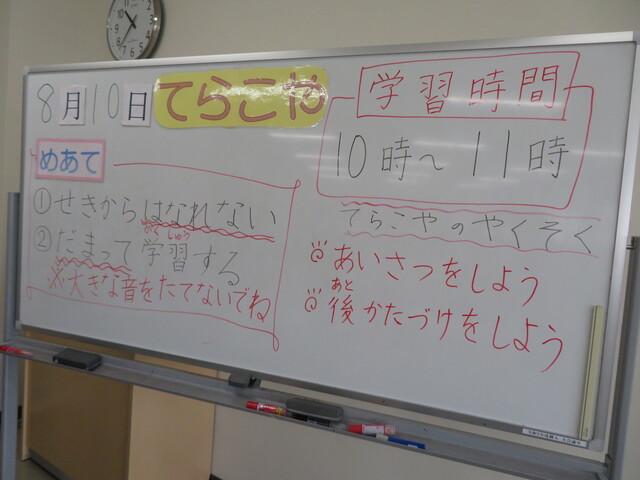 8月10日 てらこや
めあて
①せきからはなれない
②だまって学習する
がくしゅう
※大きな音をたてないでね
学習時間
10時~11時
てらこやのやくそく
あいさつをしよう
あと
後かたづけをしよう